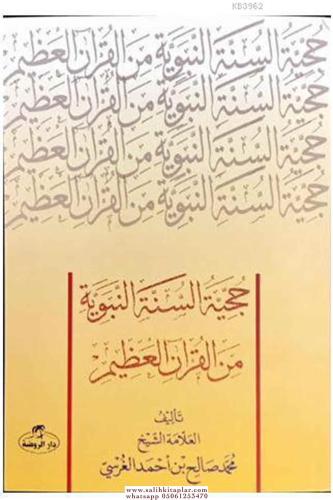 KB3962
حجية السنة النبوية من القرآن العظيم
حجية السنة النبوية من القرآن العظيم
حجية السنة النبوية من القرآن العظيم
حجية السنة النبوية من القرآن العظيم
حُجِّيَّةُ السُّنَّةِ النَّبَوِيَّةِ
مِنَ القُرآنِ العَظِيمِ
تأليف
العلامة الشيخ
محمد صالح بن أحمد الغرسي
دار الروضة
www.salihkitaplar.com
whatsapp 05061253470